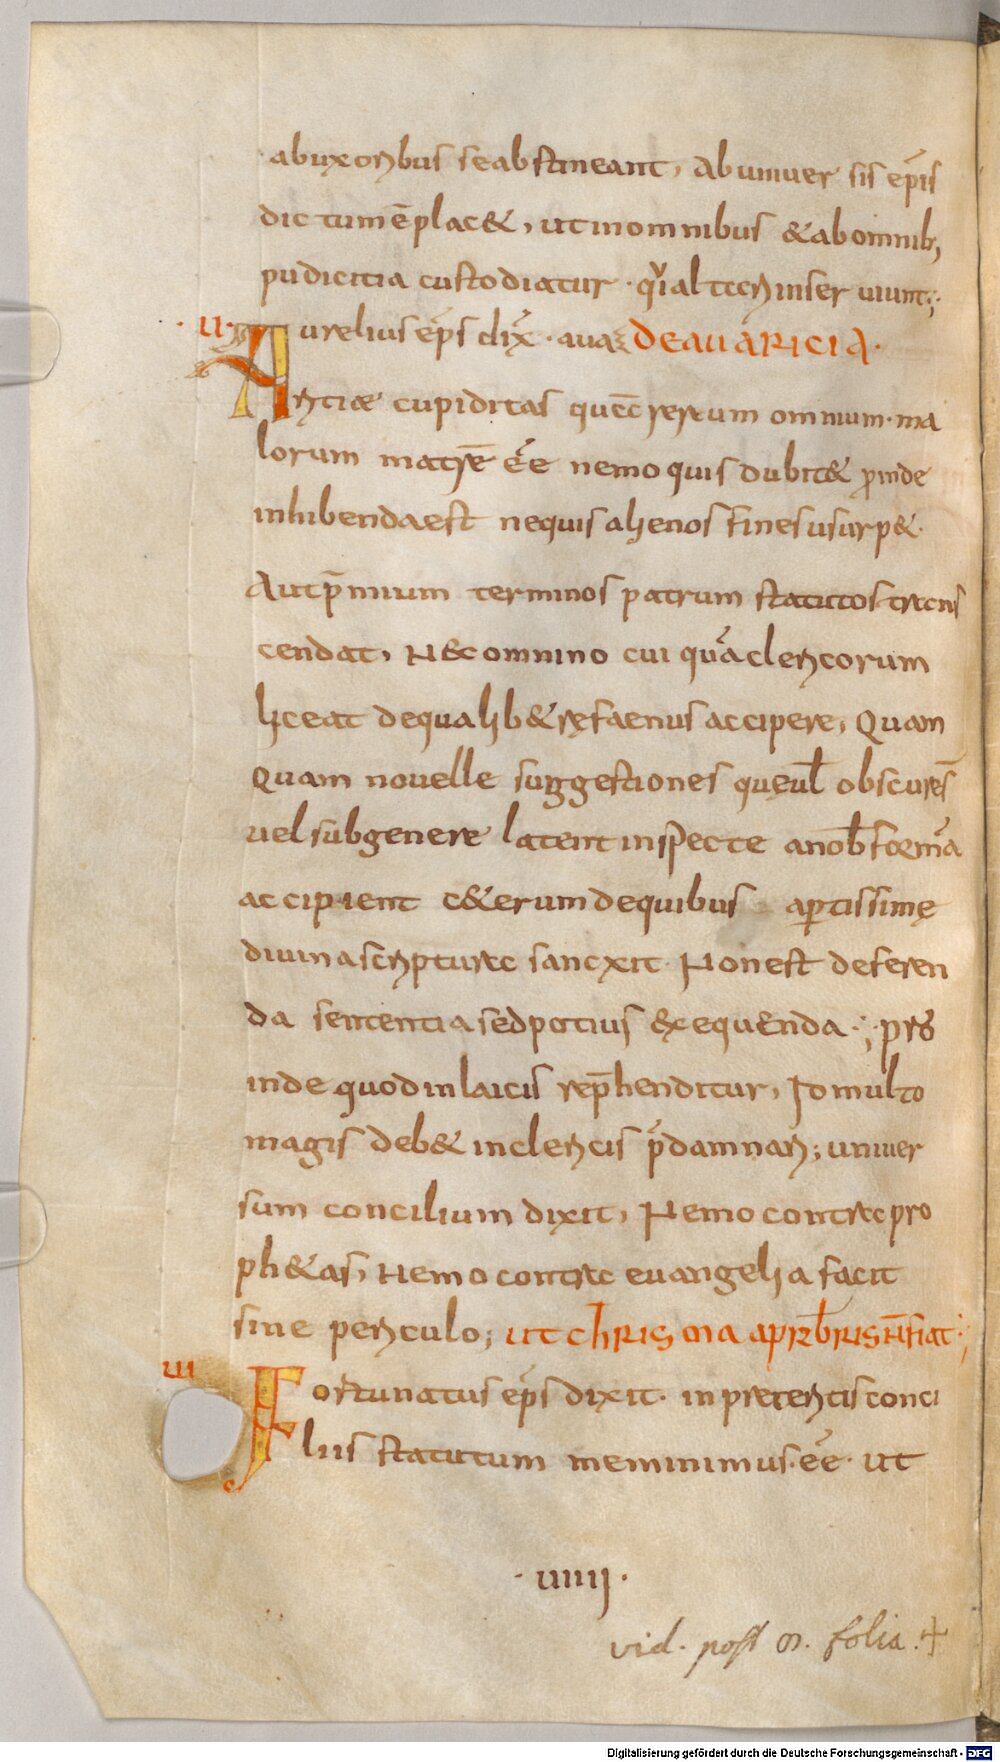 abuxoribus seabstineant, Abuniuer sis ep̅is
dictumē plac&, utinomnibus &abomnib;
pudicitia custodiatur · qui altari inseruiunt;
·II· Aurelius ep̅s dix̅ · auar DEAUARICIA ·
ritiae cupiditas quēc rerum omnium · ma
lorum matrē ēē nemo quis dubit& proinde
inhibendaest nequis alienos fines usurp& ·
Aut p̅mium terminos patrum statutos trans
cendat, N&comnino cui quā clericorum
liceat dequalib& re faenus accipere, Quam
Quam nouelle suggestiones quę uel̅ obscure s̅
uel subgenere latent inspecte anob̅ formā
accipient c&erum dequibus apertissimę
diuina scriptura sancxit · Non est deferen
da sententia sed potius exequenda · ; pro
inde quod inlaicis rep̅henditur, Id multo
magis deb& inclericis p̅damnari; uniuer
sum concilium dixit, Nemo contra pro
ph&as, Nemo contra euangelia facit
sine periculo; UT CHRISMA A PRB̅RIS N̅ FIAT ;
III Fortunatus ep̅s dixit · in preteritis conci
liis statutum meminimus · ēē · ut
· IIIIJ ·
vid. post m. folia. +
Digitalisierung gefördert durch die Deutsche Forschungsgemeinschaft - DFG